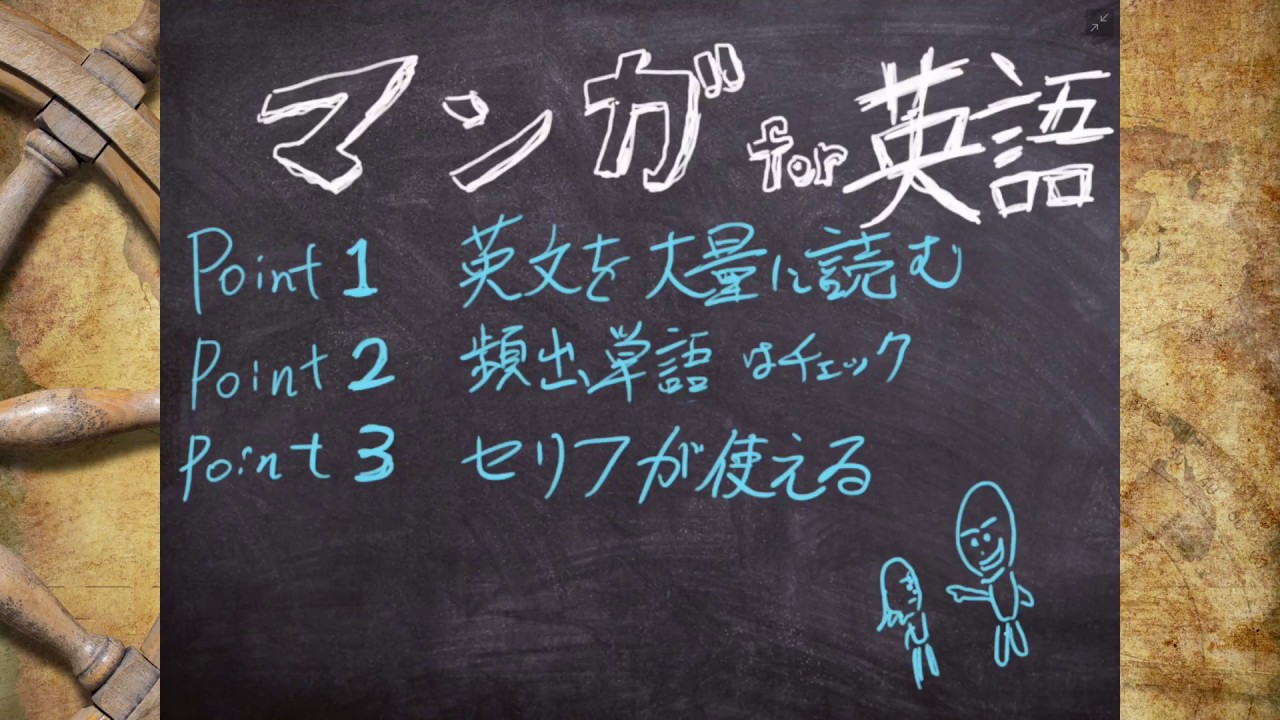 マンガ for 英語
Point 1 英文を大量に読む
Point 2 頻出単語はチェック
Point 3 セリフが使える